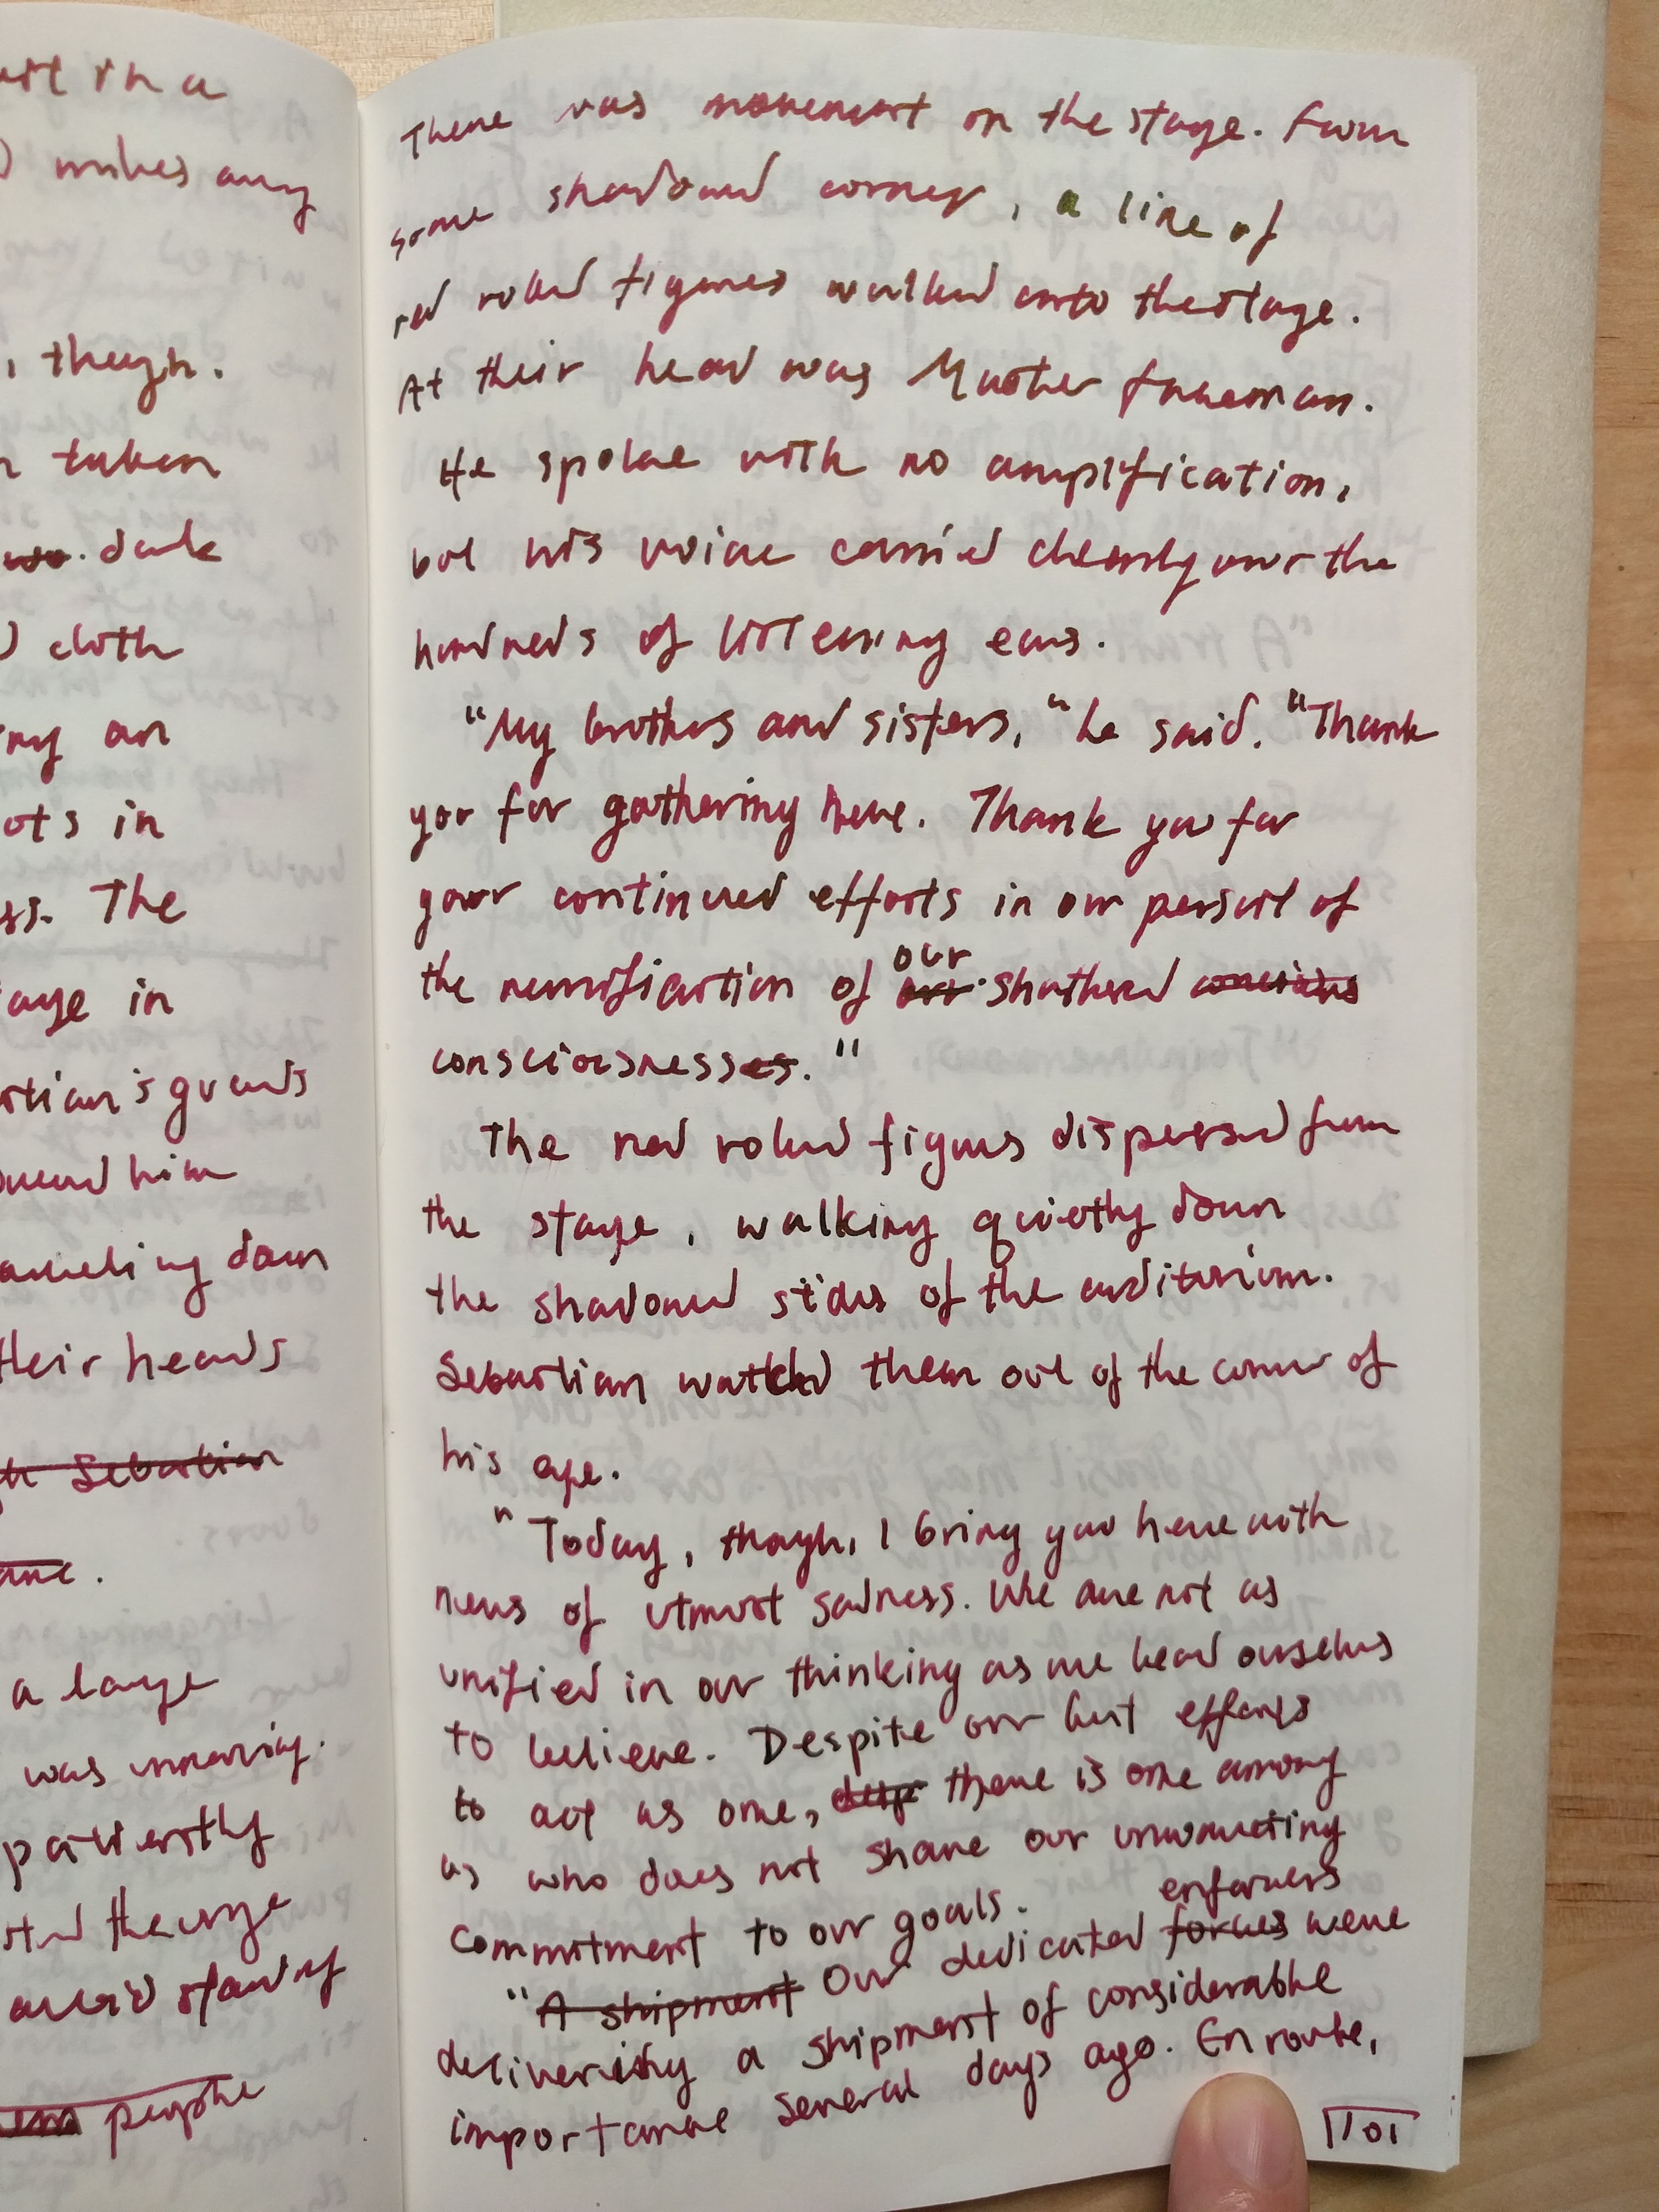 art in a
makes any
, though.
taken
dark
cloth
ny an
ots in
ss. The
age in
stian's guards
him
down
their heads
Sebastian
a large
was unmoving.
patiently
the urge
people
There was movement on the stage. From
some shadowed corner, a line of
red robed figures walked onto the stage.
At their head was Master Freeman.
He spoke with no amplification,
but his voice carried clearly over the
hundreds of listening ears.
"My brothers and sisters," he said. "Thank
you for gathering here. Thank you for
your continued efforts in our persuit of
the reunification of our shattered
consciousness."
The red robed figures dispersed from
the stage, walking quietly down
the shadowed sides of the auditorium.
Sebastian watched them out of the corner of
his eye.
"Today, though, I bring you here with
news of utmost sadness. We are not as
unified in our thinking as we lead ourselves
to believe. Despite our best efforts
to act as one, there is one among
us who does not share our unwavering
commitment to our goals.
"A shipment Our dedicated forces enforcers were
delivering a shipment of considerable
importance several days ago. En route,
101